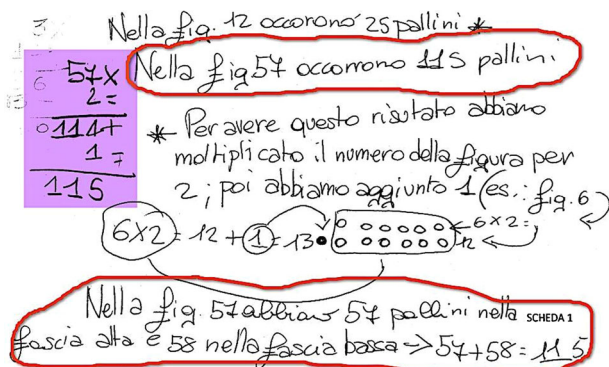 Nella fig. 12 occorono 25 pallini *
Nella fig 57 occorrono 115 pallini
57x
2=
114+
1=
115
* Per avere questo risultato abbiamo
moltiplicato il numero della figura per
2; poi abbiamo aggiunto 1 (es.: fig. 6)
6x2=12+1=13
←6x2=
12
Nella fig. 57 abbiamo 57 pallini nella SCHEDA 1
fascia alta e 58 nella fascia bassa → 57+58=115